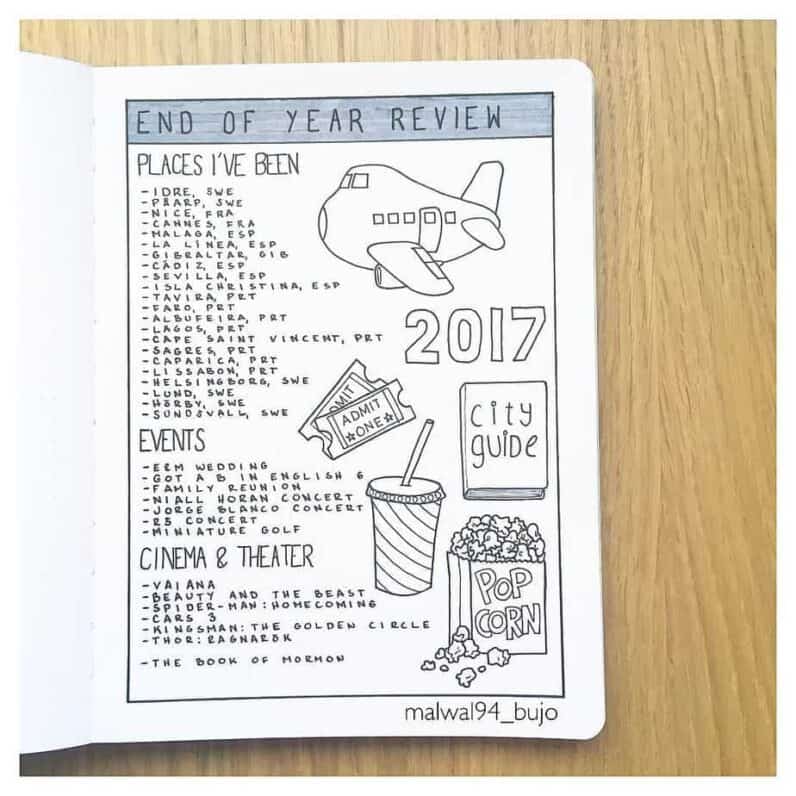 END OF YEAR REVIEW
PLACES I'VE BEEN
- IDRE, SWE
- PÅARP, SWE
- NICE, FRA
- CANNES, FRA
- MALAGA, ESP
- LA LÍNEA, ESP
- GIBRALTAR, GIB
- CÁDIZ, ESP
- SEVILLA, ESP
- ISLA CHRISTINA, ESP
- TAVIRA, PRT
- FARO, PRT
- ALBUFEIRA, PRT
- LAGOS, PRT
- CAPE SAINT VINCENT, PRT
- SAGRES, PRT
- CAPARICA, PRT
- LISSABON, PRT
- HELSINGBORG, SWE
- LUND, SWE
- HÖRBY, SWE
- SUNDSVALL, SWE
2017
ADMIT
ADMIT
ONE
city
guide
EVENTS
- E&M WEDDING
- GOT A B IN ENGLISH 6
- FAMILY REUNION
- NIALL HORAN CONCERT
- JORGE BLANCO CONCERT
- R5 CONCERT
- MINIATURE GOLF
CINEMA & THEATER
- VAIANA
- BEAUTY AND THE BEAST
- SPIDER-MAN: HOMECOMING
- CARS 3
- KINGSMAN: THE GOLDEN CIRCLE
- THOR: RAGNARÖK
- THE BOOK OF MORMON
POP
CORN
malwal94_bujo